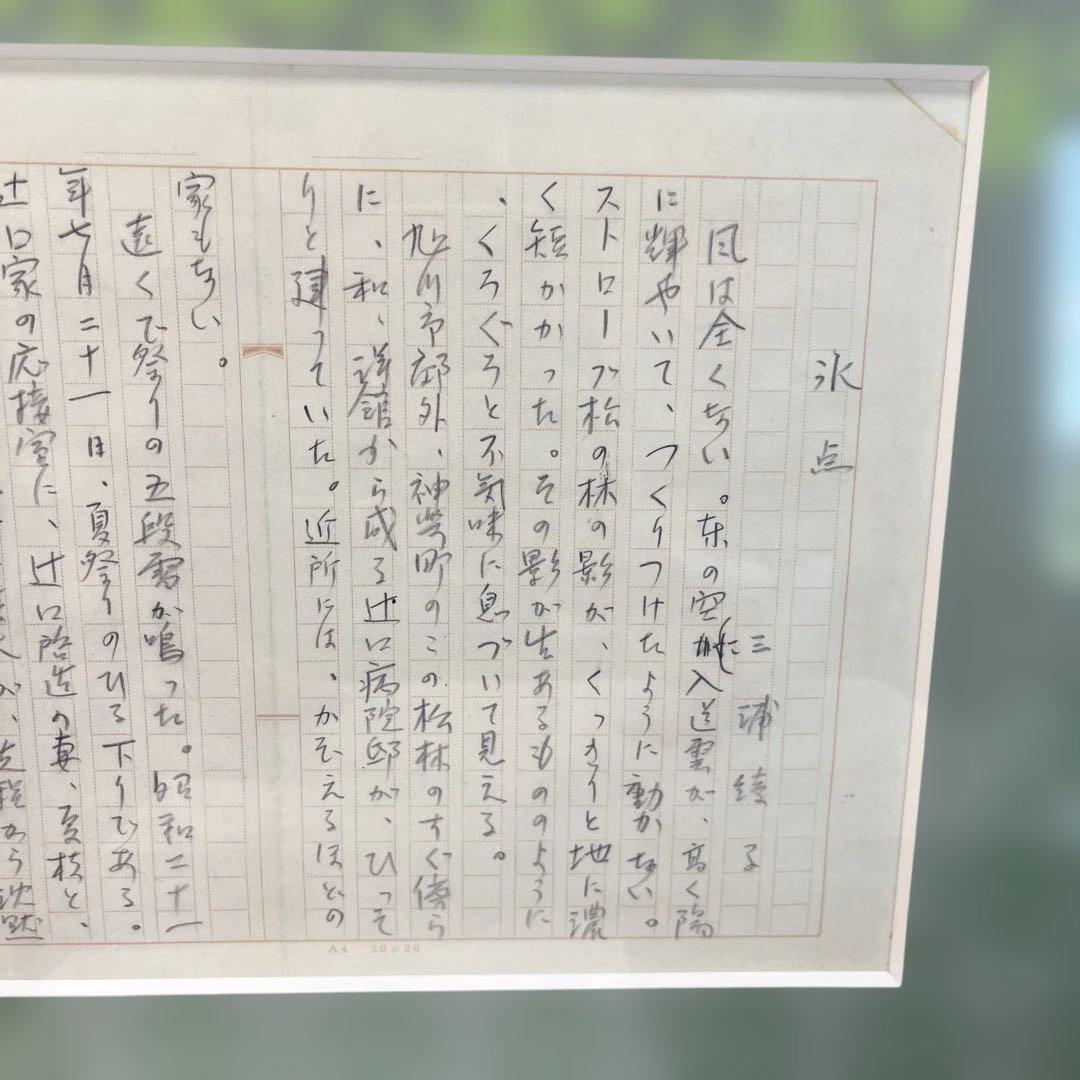 氷点
三浦綾子
風は全くない。東の空に入道雲が、高く陽
に輝やいて、つくりつけたように動かない。
ストローブ松の林の影が、くっきりと地に濃
く短かかった。その影が生あるもののように
、くろぐろと不気味に息づいて見える。
旭川市郊外、神楽町のこの松林のすぐ傍ら
に、和、洋館から成る辻口病院邸が、ひっそ
りと建っていた。近所には、かぞえるほどの
家もない。
遠くで祭りの五段雷が鳴った。昭和二十一
年七月二十一日、夏祭りのひる下りである。
辻口家の応接室に、辻口啓造の妻、夏枝と、
A4 20×20